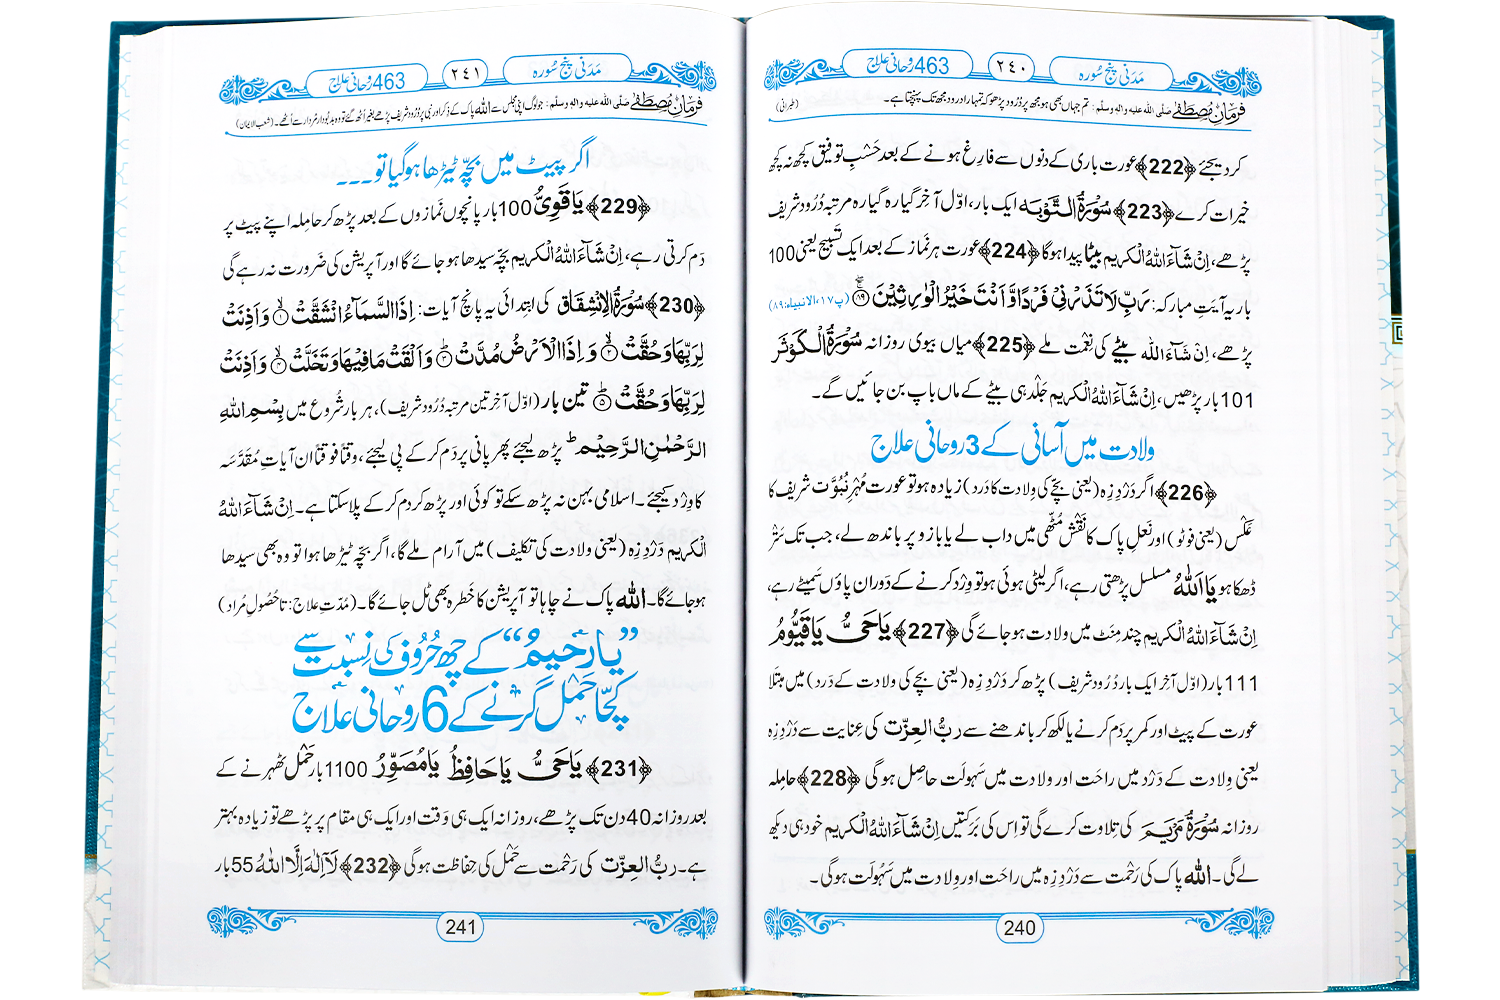 مَدَنی پنج سُورہ
٢٤٠
463 رُوحانی عِلاج
فرمانِ مُصطفٰے صلی اللہ علیہ والہٖ وسلّم: تم جہاں بھی ہو مجھ پر دُرُود پڑھو کہ تمہارا درود مجھ تک پہنچتا ہے۔ (طبرانی)
کر دیجئے ﴿222﴾ عورت باری کے دنوں سے فارِغ ہونے کے بعد حَسْبِ توفیق کچھ نہ کچھ
خیرات کرے ﴿223﴾ سُوْرَۃُ التَّوْبَہ ایک بار، اوّل آخِر گیارہ گیارہ مرتبہ دُرُود شریف
پڑھے، اِنْ شَآءَ اللہُ الْکریم بیٹا پیدا ہوگا ﴿224﴾ عورت ہر نَماز کے بعد ایک تَسْبیح یعنی 100
بار یہ آیتِ مبارکہ: رَبِّ لَا تَذَرْنِیْ فَرْدًا وَّ اَنْتَ خَیْرُ الْوٰرِثِیْنَ ﴿۸۹﴾ (پ۱۷، الانبیاء: ۸۹)
پڑھے، اِنْ شَآءَ اللہ بیٹے کی نِعْمت ملے ﴿225﴾ میاں بیوی روزانہ سُوْرَۃُ الْکَوْثَر
101 بار پڑھیں، اِنْ شَآءَ اللہُ الْکریم جَلْد ہی بیٹے کے ماں باپ بن جائیں گے۔
وِلادت میں آسانی کے 3 روحانی علاج
﴿226﴾ اگر دَرْدِ زِہ (یعنی بچّے کی وِلادت کا دَرد) زیادہ ہو تو عورت مُہْرِ نُبُوَّت شریف کا
عَکْس (یعنی فوٹو) اور نَعْلِ پاک کا نَقْش مُٹّھی میں داب لے یا بازو پر باندھ لے، جب تک سَتْر
ڈھکا ہو یَا اَللّٰہُ مسلسل پڑھتی رہے، اگر لیٹی ہوئی ہو تو وِرْد کرنے کے دَوران پاؤں سَمیٹے رہے،
اِنْ شَآءَ اللہُ الْکریم چند مِنَٹ میں ولادت ہو جائے گی ﴿227﴾ یَاحَیُّ یَاقَیُّوْمُ
111 بار (اوّل آخِر ایک بار دُرُود شریف) پڑھ کر دَرْدِ زِہ (یعنی بچّے کی ولادت کے دَرد) میں مبتلا
عورت کے پیٹ اور کمر پر دَم کرنے یا لکھ کر باندھنے سے ربُّ الْعِزّت کی عِنایت سے دَرْدِ زِہ
یعنی وِلادت کے دَرْد میں راحت اور وِلادت میں سَہُولت حاصِل ہوگی ﴿228﴾ حامِلہ
روزانہ سُوْرَۃُ مَرْیَم کی تِلاوت کرے گی تو اِس کی بَرَکتیں اِنْ شَآءَ اللہُ الْکریم خود ہی دیکھ
لے گی۔ اللہ پاک کی رَحْمت سے دَرْدِ زِہ میں راحت اور وِلادت میں سَہُولت ہوگی۔
240
مَدَنی پنج سُورہ
٢٤١
463 رُوحانی عِلاج
فرمانِ مُصطفٰے صلی اللہ علیہ والہٖ وسلّم: جو لوگ اپنی مجلس سے اللہ پاک کے ذِکر اور نبی پر دُرُود شریف پڑھے بغیر اُٹھ گئے تو وہ بدبودار مُردار سے اُٹھے۔ (شعب الایمان)
اگر پیٹ میں بچّہ ٹیڑھا ہو گیا تو۔۔۔
﴿229﴾ یَاقَوِیُّ 100 بار پانچوں نَمازوں کے بعد پڑھ کر حامِلہ اپنے پیٹ پر
دَم کرتی رہے، اِنْ شَآءَ اللہُ الْکریم بچّہ سیدھا ہو جائے گا اور آپریشن کی ضَرورت نہ رہے گی
﴿230﴾ سُوْرَۃُ الْاِنْشِقَاق کی ابتدائی یہ پانچ آیات: اِذَا السَّمَآءُ انْشَقَّتْ ۙ﴿۱﴾ وَ اَذِنَتْ
لِرَبِّهَا وَ حُقَّتْ ۙ﴿۲﴾ وَ اِذَا الْاَرْضُ مُدَّتْ ۙ﴿۳﴾ وَ اَلْقَتْ مَا فِیْهَا وَ تَخَلَّتْ ۙ﴿۴﴾ وَ اَذِنَتْ
لِرَبِّهَا وَ حُقَّتْ ؕ﴿۵﴾ تین بار (اوّل آخِر تین مرتبہ دُرُود شریف)، ہر بار شُروع میں بِسْمِ اللّٰہِ
الرَّحْمٰنِ الرَّحِیْمِ ؕ پڑھ لیجئے پھر پانی پر دَم کر کے پی لیجئے، وقتاً فوقتاً ان آیاتِ مُقَدَّسَہ
کا وِرْد کیجئے۔ اسلامی بہن نہ پڑھ سکے تو کوئی اور پڑھ کر دم کر کے پلا سکتا ہے۔ اِنْ شَآءَ اللہُ
الْکریم دَرْدِ زِہ (یعنی ولادت کی تکلیف) میں آرام ملے گا، اگر بچّہ ٹیڑھا ہوا تو وہ بھی سیدھا
ہو جائے گا۔ اللہ پاک نے چاہا تو آپریشن کا خطرہ بھی ٹل جائے گا۔ (مُدّتِ علاج: تا حُصُولِ مُراد)
”یا رَحِیمُ“ کے چھ حُرُوف کی نِسبت سے
کچّا حَمْل گرنے کے 6 رُوحانی عِلاج
﴿231﴾ یَاحَیُّ یَاحَافِظُ یَامُصَوِّرُ 1100 بار حَمْل ٹھہرنے کے
بعد روزانہ 40 دن تک پڑھے، روزانہ ایک ہی وَقت اور ایک ہی مقام پر پڑھے تو زیادہ بہتر
ہے۔ ربُّ الْعِزّت کی رَحْمت سے حَمْل کی حِفاظت ہوگی ﴿232﴾ لَآ اِلٰہَ اِلَّا اللّٰہُ 55 بار
241